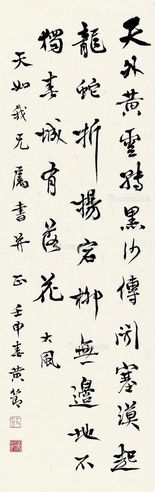 天外黃雲轉黑沙傳聞塞漠起
龍蛇折楊宕柳無邊地不
獨春城有落花 大風
天如我兄屬書并正 壬申春黃節